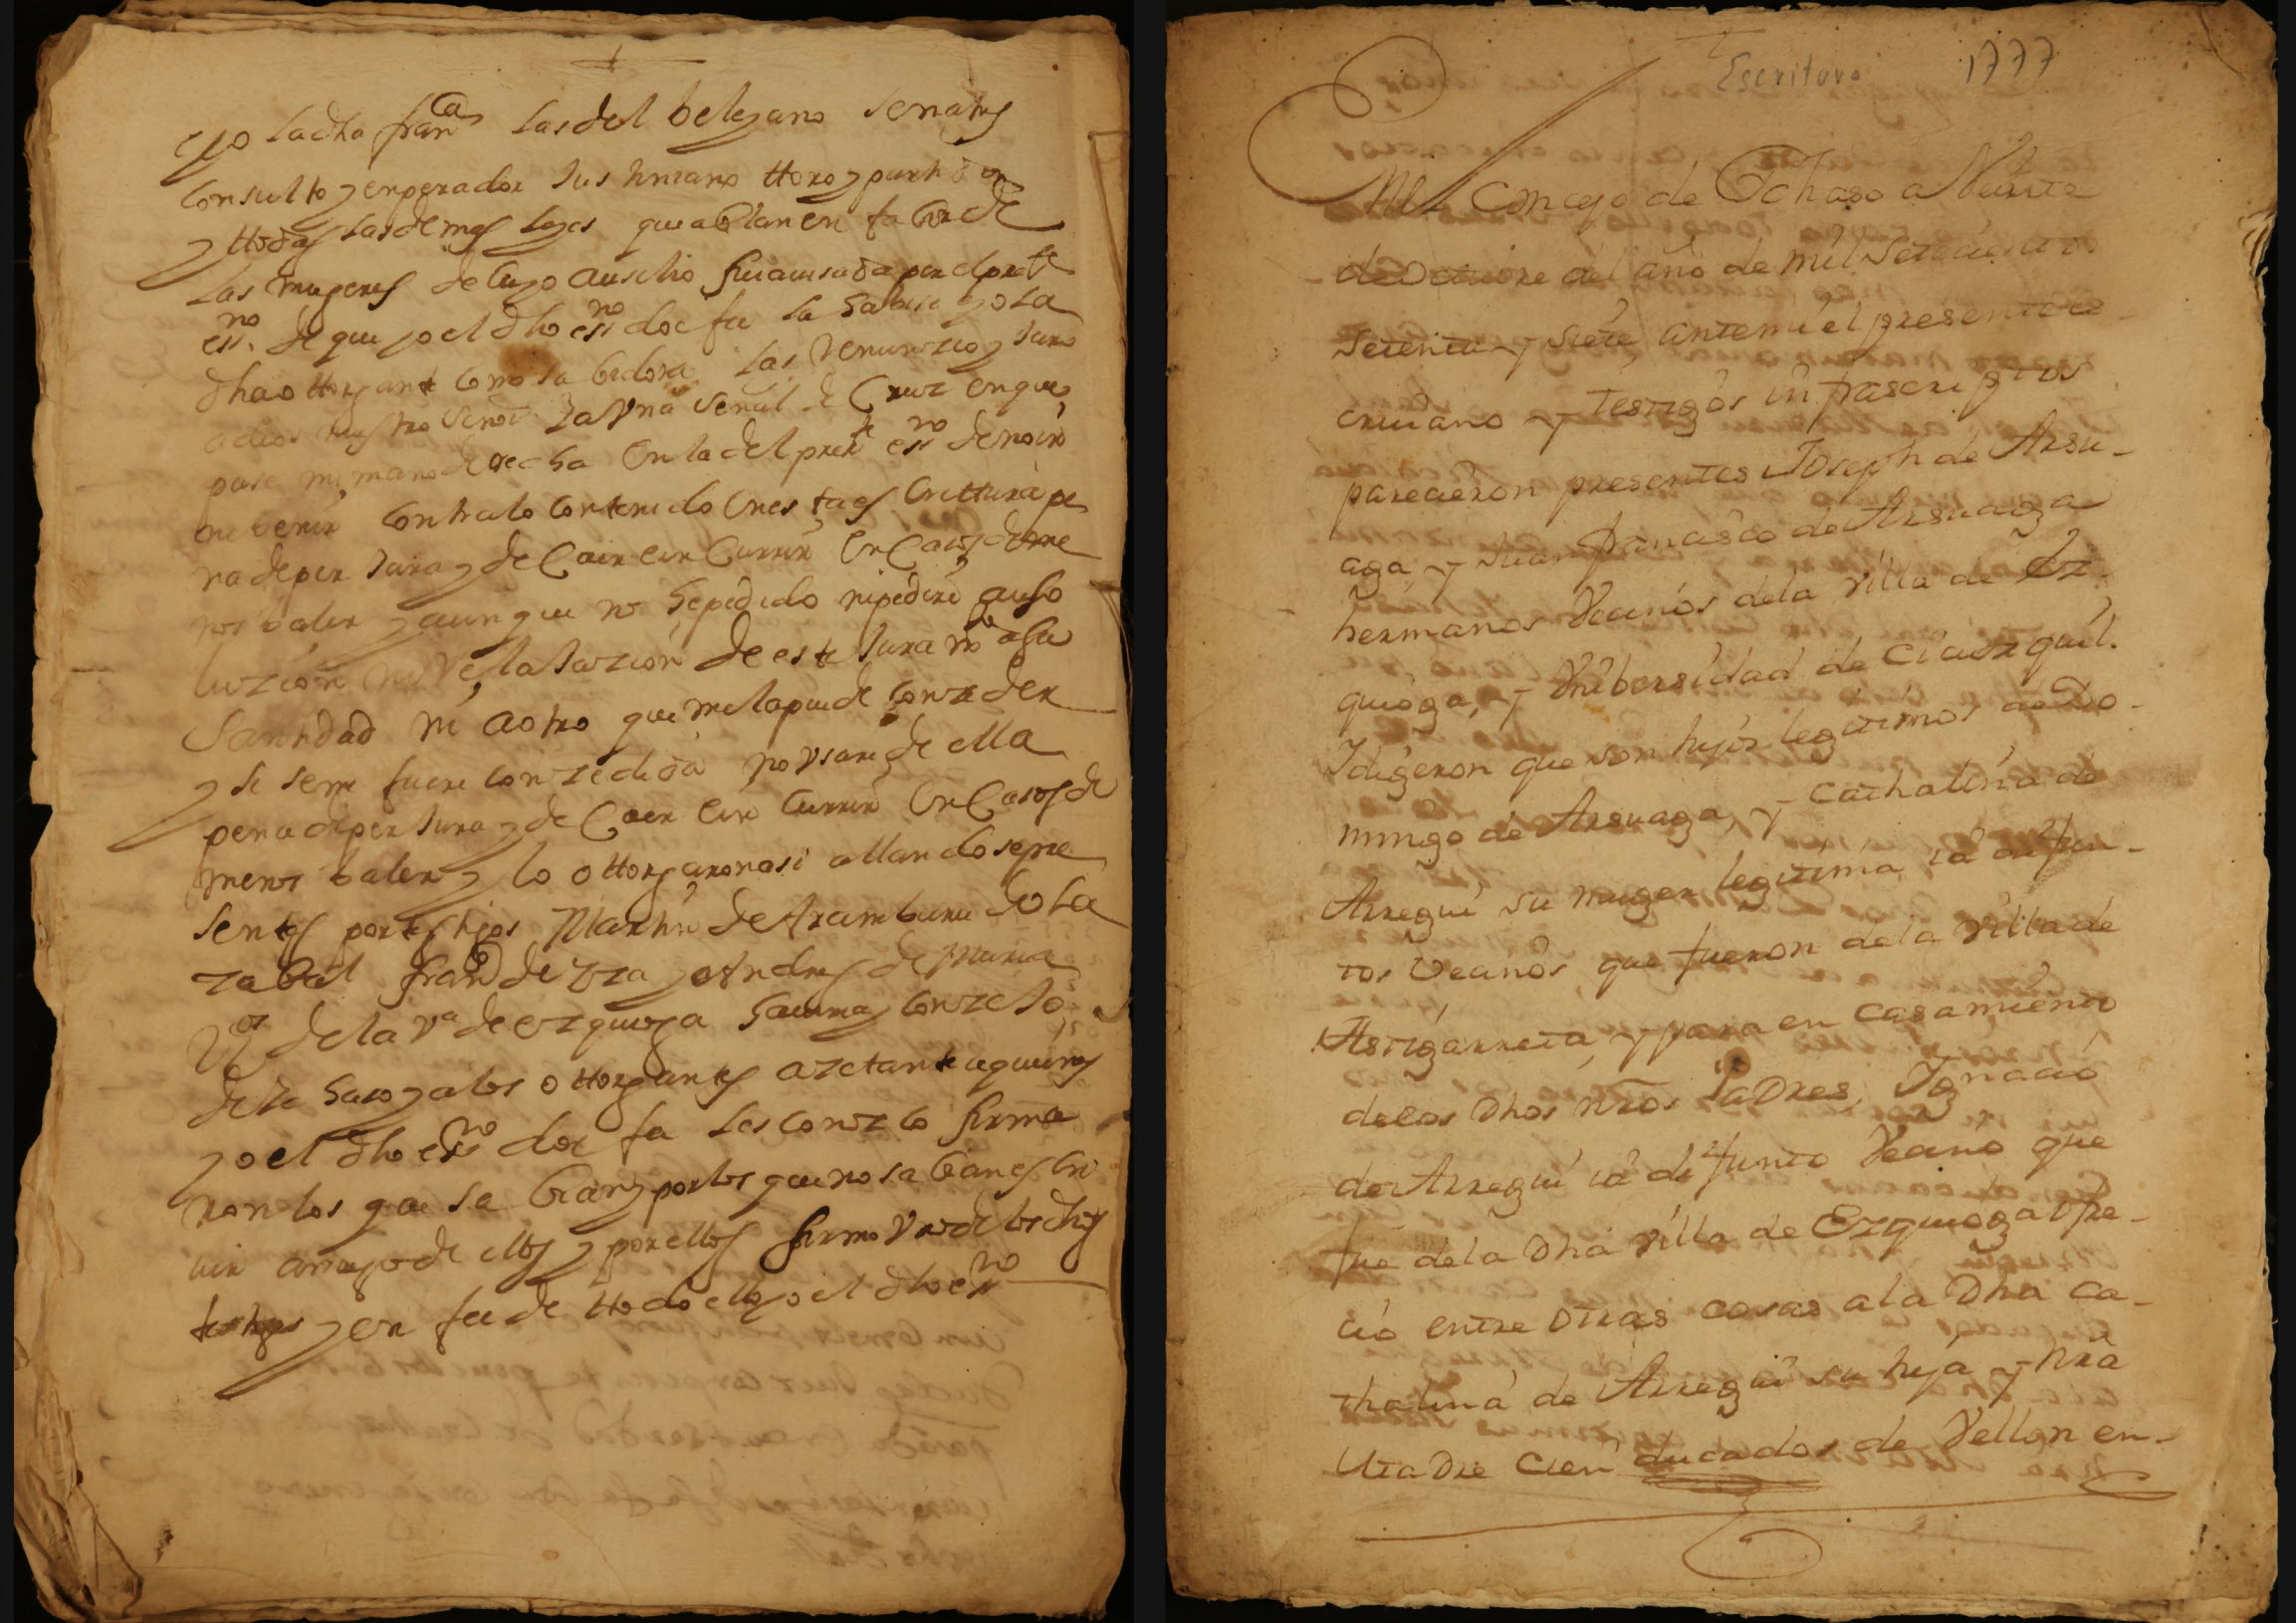 yo la dha fran^ca las del belezano senatus
consulto y enperador Justiniano ttoro y partida
y ttodas las demas leyes que ablan en fabor de
las mugeres de cuyo ausilio fui auisada por el press^te
ess^no de que yo el dho ess^no doi fee la saber yo la
dha ottorgante como sabidora las renunzio y Juro
a dios nuestro señor y a vna señal de Cruz en que
puse mi mano derecha en la del press^te ess^no de no ir
ni benir contra lo contenido en esta escrittura pe
na de perJura y de Caer e in Currir en Caso de me
nos baler y aunque no he pedido ni pedire auso
luzion ni relaJazion de este Juram^to a su
Santidad ni a otro que me la puede conzeder
y si seme fuere conzedida no vsare de ella
pena de perJura y de Caer e in Currir en Casos de
menos baler y lo ottorgaron asi allandose pre
sentes por testigos Martin de Aramburu
zabal fran^co de y Andres de
vz^os de la v^a de ezquioga
de la ottorgantes azetante a quienes
yo el dho ess^no doi fee les conozco firma
ron los que sabian y por los que no sabian escri
uir a rruego de ellos y por ellos firmo vno de los dhos
testigos y en fee de ttodo ello yo el dho ess^no
Escritura 1777
En el Concejo de Ichaso a Veinte
de Octubre del año de mil Setecientos
Setenta y siete ante mi el presente es-
criuano y testigos infrascriptos
parecieron presentes Joseph de Arsu-
aga, y Juan francisco de Arsuaga
hermanos Vecinos de la villa de Ez-
quioga, y Vnibersidad de
I digeron que son hijos legitimos de Do-
mingo de Arsuaga, y Cathalina de
Arregui su muger legitima, ia difun-
tos Vecinos que fueron de la Villa de
Astigarreta, y para en casamiento
de los Dhos nros Padres, Ignacio
de Arregui ia difunto Vecino que
fue de la Dha villa de Ezquioga Ofre-
cio entre Otras cosas a la Dha Ca-
thalina de Arregui su hija y nra
Madre Cien ducados de Vellon en-